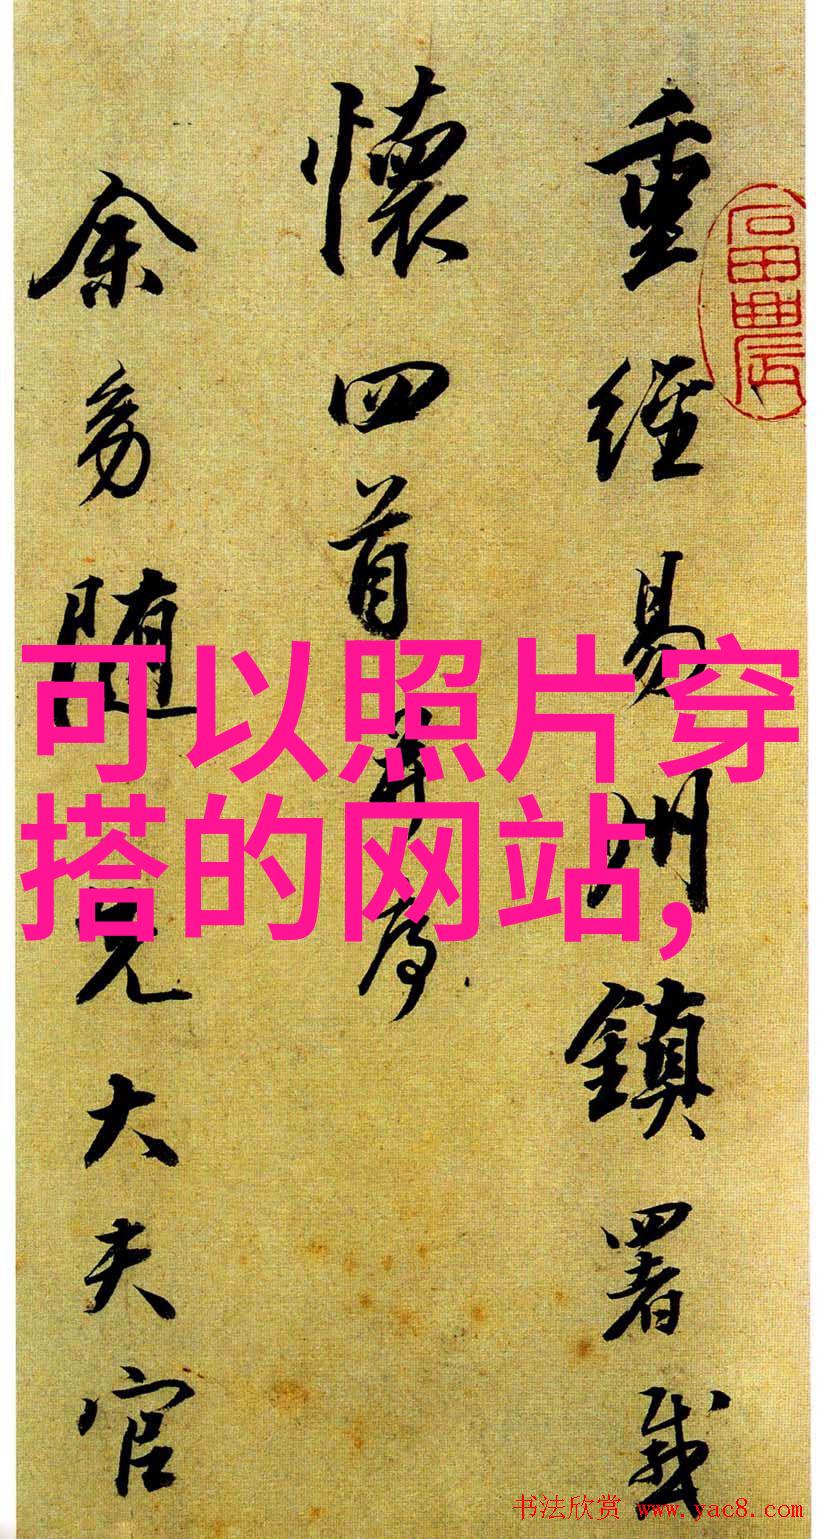 重經易州鎮署感
懷四首并序
余幼隨先大夫官
可以照片穿
搭的网站,
书法欣赏 www.yac8.com